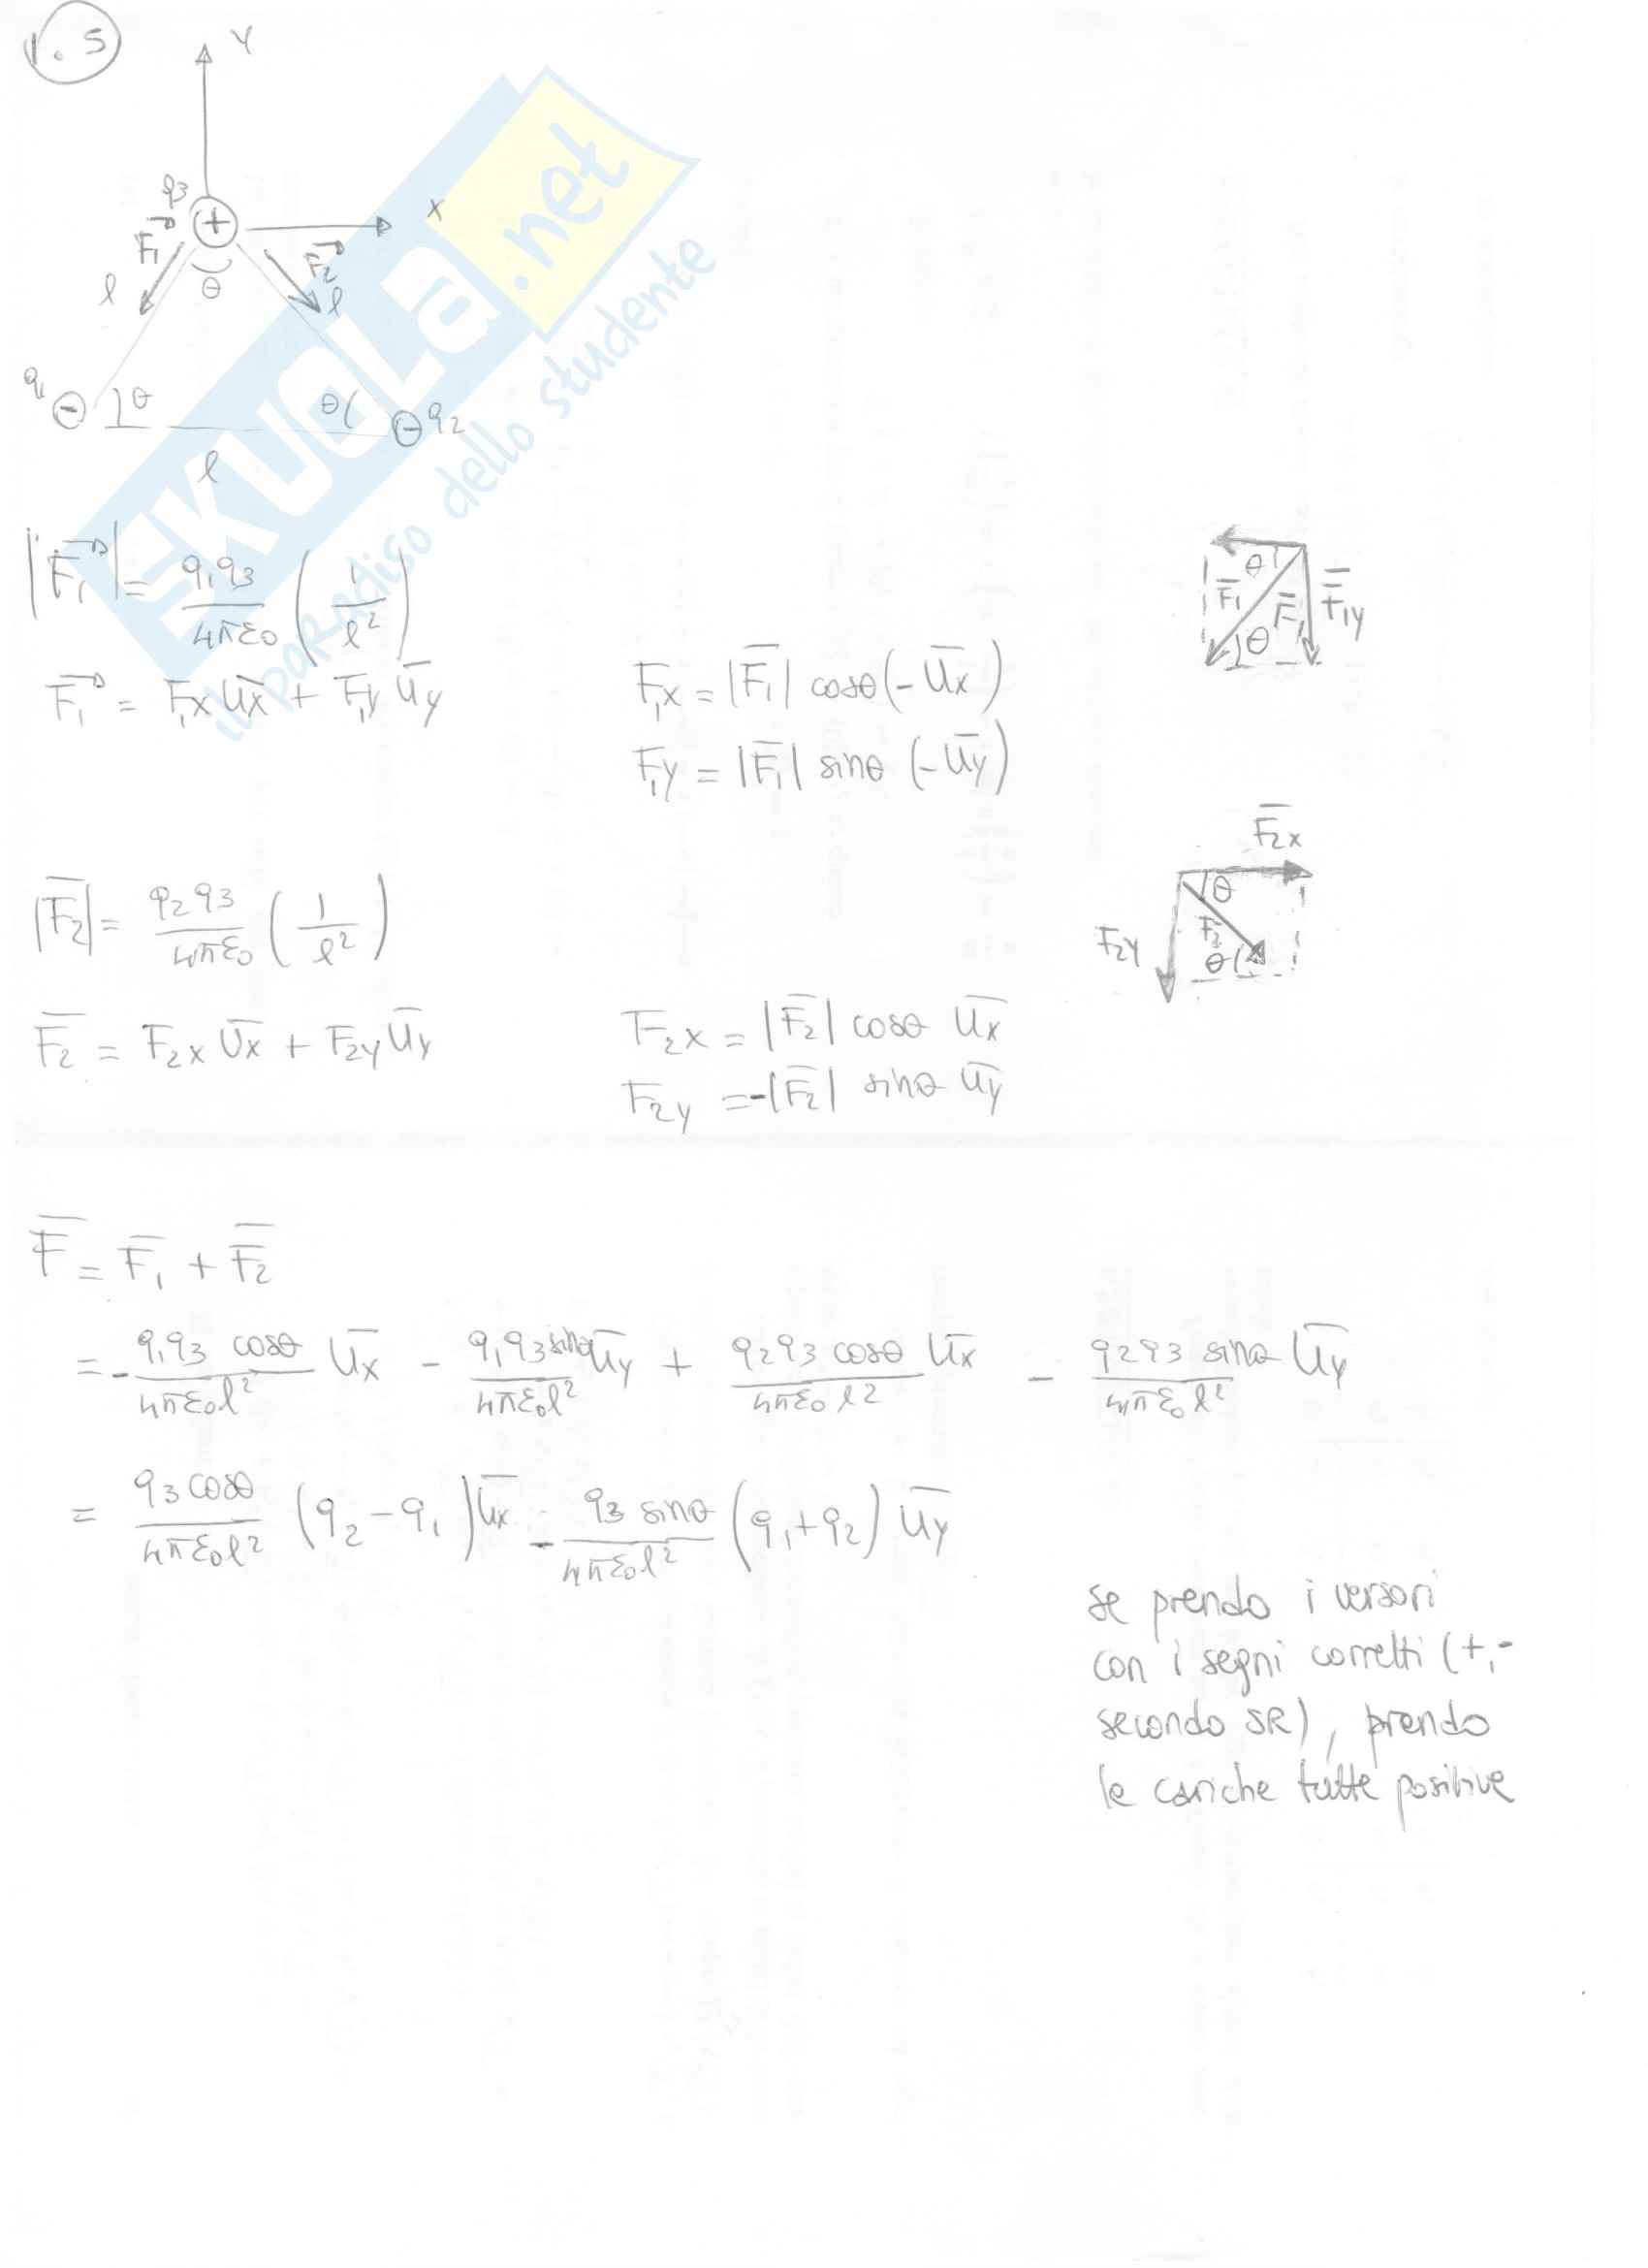 1.5
y
q3
+
x
F1
F2
θ
l
l
q1
−
θ
θ
− q2
l
SKUOLA.net
il paradiso dello studente
|F1| = q1q3/4πε0 (1/l²)
F1 = F1x ux + F1y uy
F1x = |F1| cosθ (−ux)
F1y = |F1| sinθ (−uy)
θ
F1
F1
F1y
θ
|F2| = q2q3/4πε0 (1/l²)
F2 = F2x ux + F2y uy
F2x = |F2| cosθ ux
F2y = −|F2| sinθ uy
F2x
θ
F2
F2y
θ
F = F1 + F2
= − q1q3 cosθ/4πε0l² ux − q1q3 sinθ/4πε0l² uy + q2q3 cosθ/4πε0l² ux − q2q3 sinθ/4πε0l² uy
= q3 cosθ/4πε0l² (q2 − q1) ux − q3 sinθ/4πε0l² (q1 + q2) uy
se prendo i versori
con i segni corretti (+,−
secondo SR), prendo
le cariche tutte positive